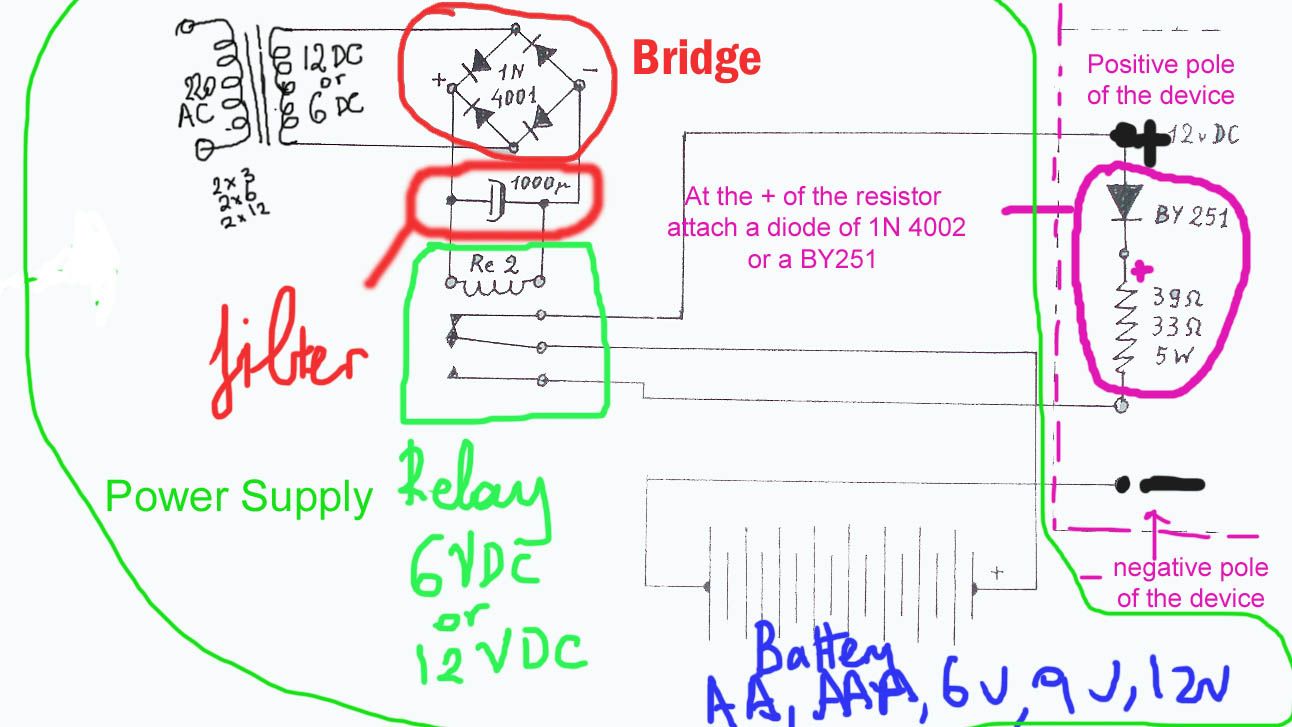 220
AC
12 DC
or
6 DC
2 x 3
2 x 6
2 x 12
+
1N
4001
-
Bridge
1000µ
filter
Re 2
Relay
6VDC
or
12 VDC
Power Supply
At the + of the resistor
attach a diode of 1N 4002
or a BY251
Positive pole
of the device
+ 12vDC
BY 251
+
39Ω
33Ω
5W
-
_ negative pole
of the device
+
Battery
AA, AAA, 6V, 9V, 12V